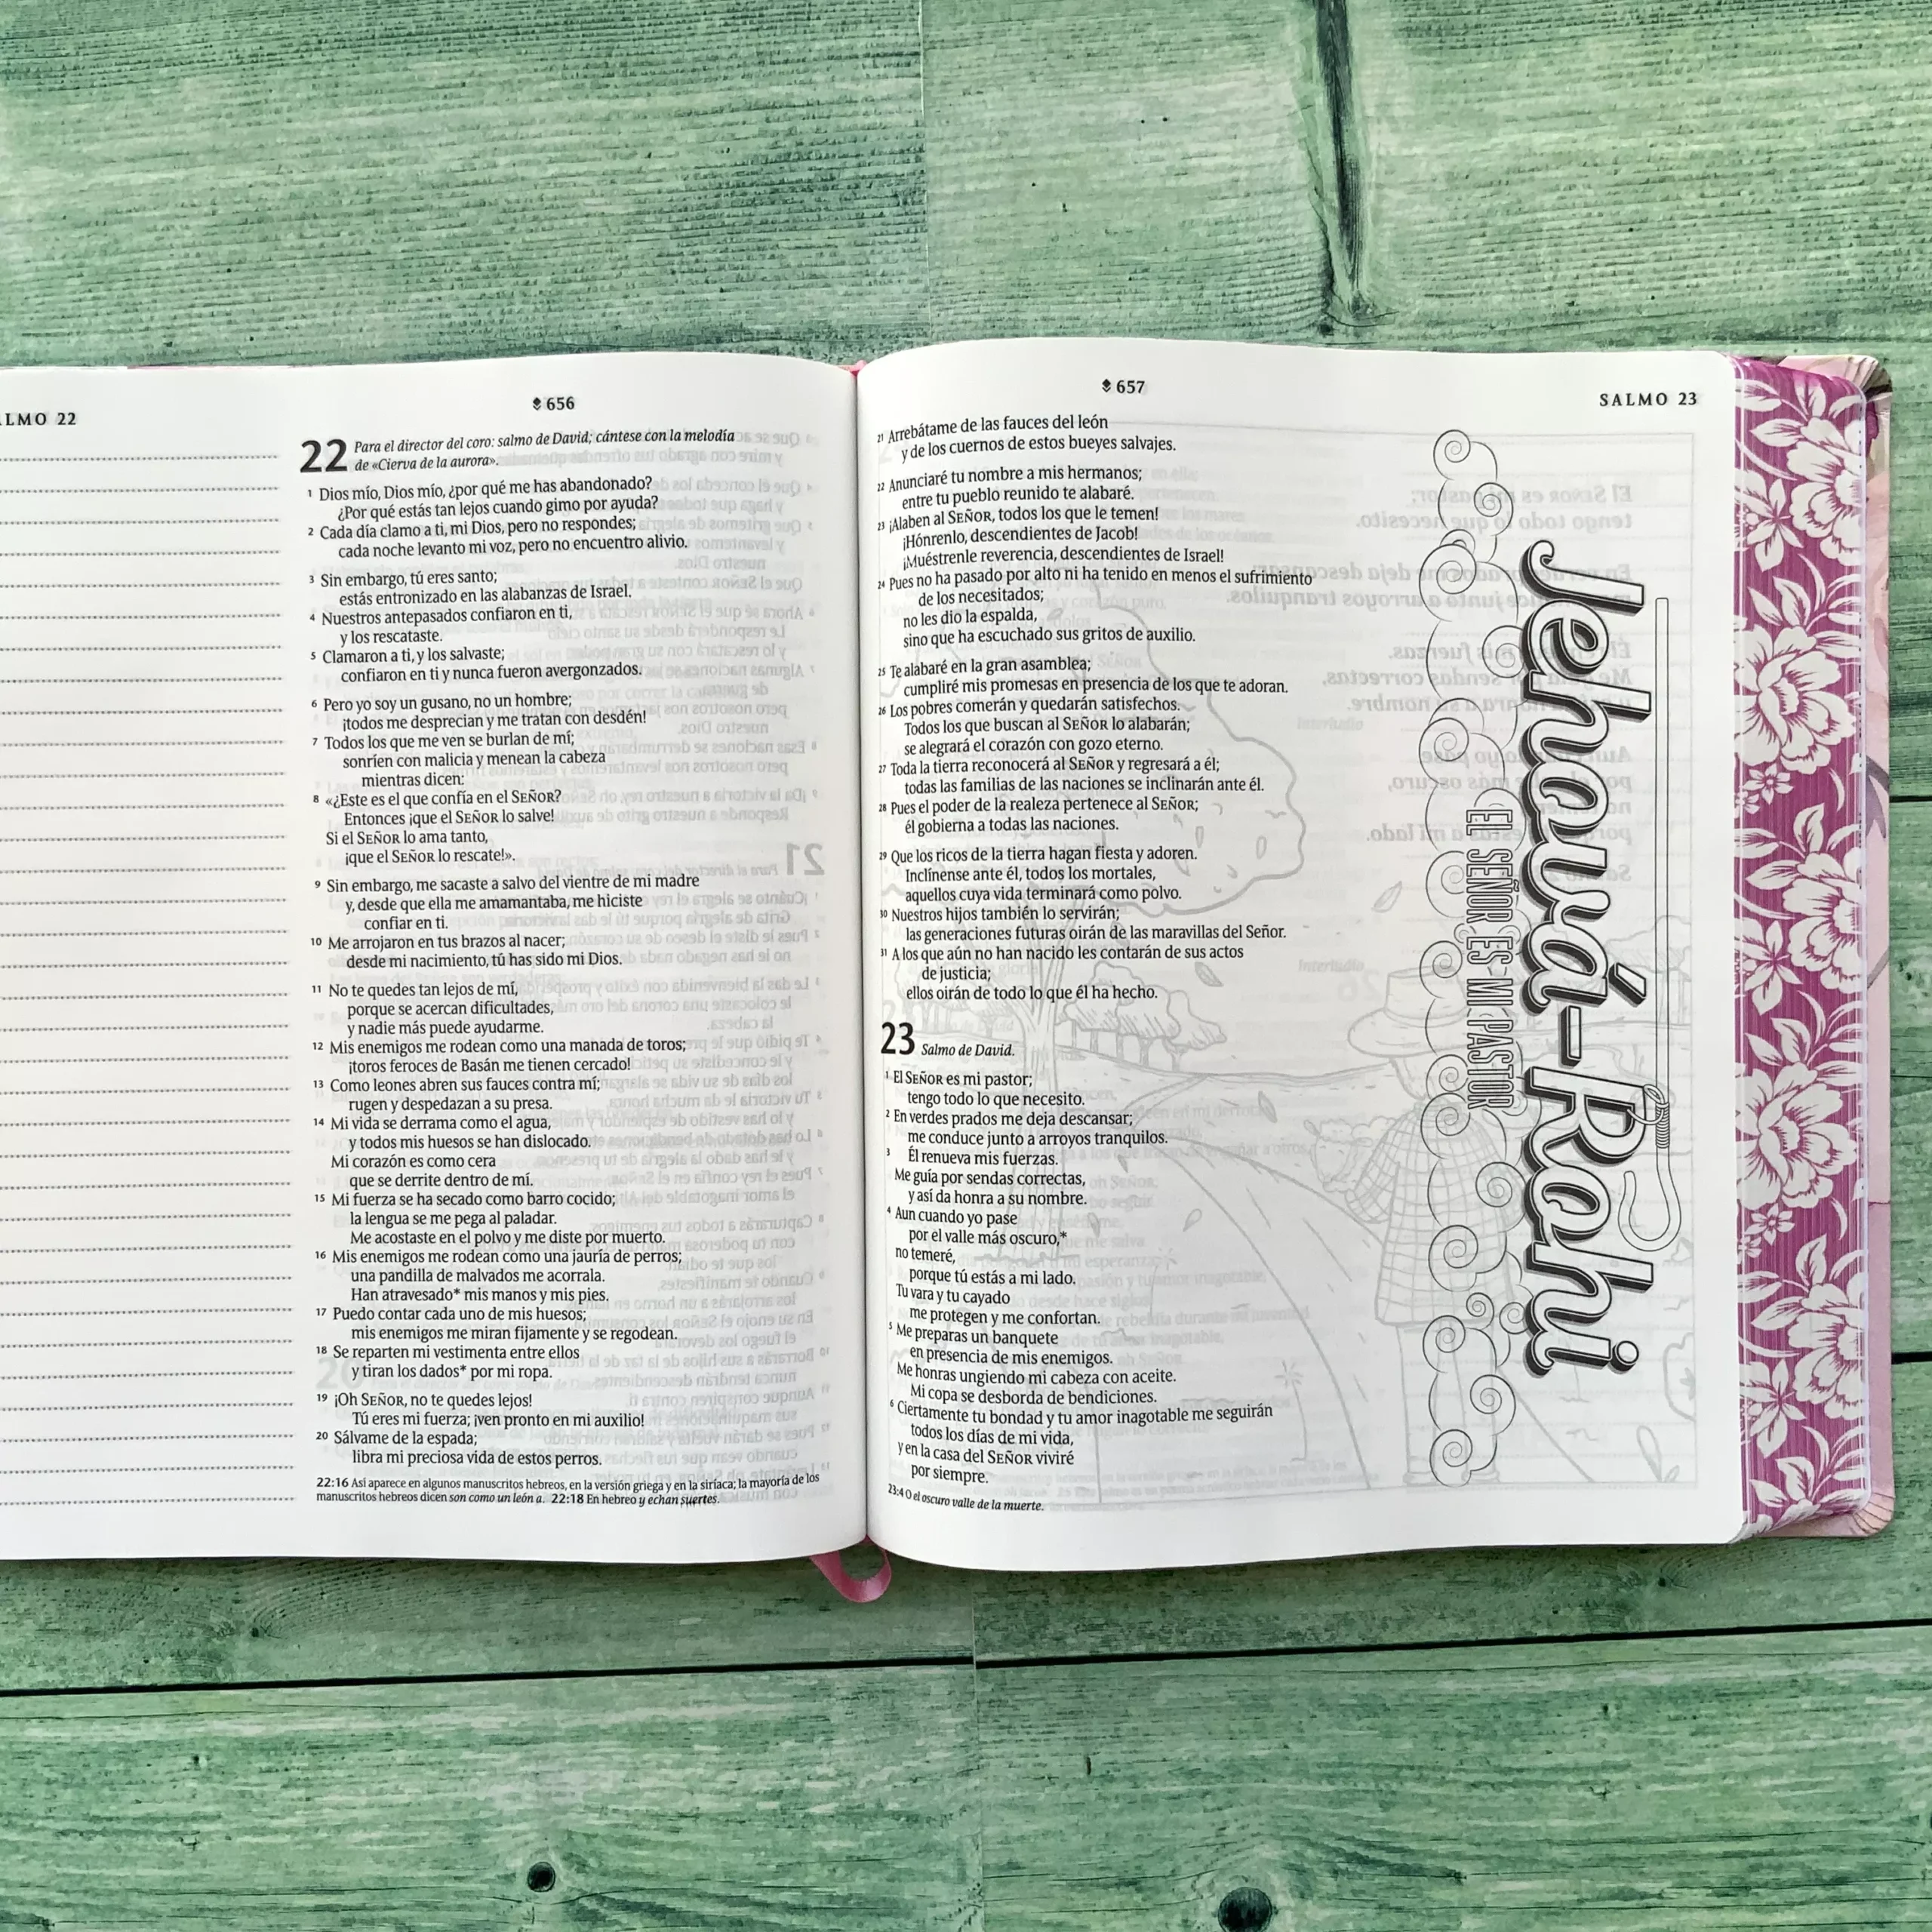 ALMO 22
656
22 Para el director del coro: salmo de David; cántese con la melodía
de «Cierva de la aurora».
1 Dios mío, Dios mío, ¿por qué me has abandonado?
¿Por qué estás tan lejos cuando gimo por ayuda?
2 Cada día clamo a ti, mi Dios, pero no respondes;
cada noche levanto mi voz, pero no encuentro alivio.
3 Sin embargo, tú eres santo;
estás entronizado en las alabanzas de Israel.
4 Nuestros antepasados confiaron en ti,
y los rescataste.
5 Clamaron a ti, y los salvaste;
confiaron en ti y nunca fueron avergonzados.
6 Pero yo soy un gusano, no un hombre;
¡todos me desprecian y me tratan con desdén!
7 Todos los que me ven se burlan de mí;
sonríen con malicia y menean la cabeza
mientras dicen:
8 «¿Este es el que confía en el SEÑOR?
Entonces ¡que el SEÑOR lo salve!
Si el SEÑOR lo ama tanto,
¡que el SEÑOR lo rescate!».
9 Sin embargo, me sacaste a salvo del vientre de mi madre
y, desde que ella me amamantaba, me hiciste
confiar en ti.
10 Me arrojaron en tus brazos al nacer;
desde mi nacimiento, tú has sido mi Dios.
11 No te quedes tan lejos de mí,
porque se acercan dificultades,
y nadie más puede ayudarme.
12 Mis enemigos me rodean como una manada de toros;
¡toros feroces de Basán me tienen cercado!
13 Como leones abren sus fauces contra mí;
rugen y despedazan a su presa.
14 Mi vida se derrama como el agua,
y todos mis huesos se han dislocado.
Mi corazón es como cera
que se derrite dentro de mí.
15 Mi fuerza se ha secado como barro cocido;
la lengua se me pega al paladar.
Me acostaste en el polvo y me diste por muerto.
16 Mis enemigos me rodean como una jauría de perros;
una pandilla de malvados me acorrala.
Han atravesado* mis manos y mis pies.
17 Puedo contar cada uno de mis huesos;
mis enemigos me miran fijamente y se regodean.
18 Se reparten mi vestimenta entre ellos
y tiran los dados* por mi ropa.
19 ¡Oh SEÑOR, no te quedes lejos!
Tú eres mi fuerza; ¡ven pronto en mi auxilio!
20 Sálvame de la espada;
libra mi preciosa vida de estos perros.
22:16 Así aparece en algunos manuscritos hebreos, en la versión griega y en la siríaca; la mayoría de los
manuscritos hebreos dicen son como un león a. 22:18 En hebreo y echan suertes.
657
SALMO 23
21 Arrebátame de las fauces del león
y de los cuernos de estos bueyes salvajes.
22 Anunciaré tu nombre a mis hermanos;
entre tu pueblo reunido te alabaré.
23 ¡Alaben al SEÑOR, todos los que le temen!
¡Hónrenlo, descendientes de Jacob!
¡Muéstrenle reverencia, descendientes de Israel!
24 Pues no ha pasado por alto ni ha tenido en menos el sufrimiento
de los necesitados;
no les dio la espalda,
sino que ha escuchado sus gritos de auxilio.
25 Te alabaré en la gran asamblea;
cumpliré mis promesas en presencia de los que te adoran.
26 Los pobres comerán y quedarán satisfechos.
Todos los que buscan al SEÑOR lo alabarán;
se alegrará el corazón con gozo eterno.
27 Toda la tierra reconocerá al SEÑOR y regresará a él;
todas las familias de las naciones se inclinarán ante él.
28 Pues el poder de la realeza pertenece al SEÑOR;
él gobierna a todas las naciones.
29 Que los ricos de la tierra hagan fiesta y adoren.
Inclínense ante él, todos los mortales,
aquellos cuya vida terminará como polvo.
30 Nuestros hijos también lo servirán;
las generaciones futuras oirán de las maravillas del Señor.
31 A los que aún no han nacido les contarán de sus actos
de justicia;
ellos oirán de todo lo que él ha hecho.
23 Salmo de David.
1 El SEÑOR es mi pastor;
tengo todo lo que necesito.
2 En verdes prados me deja descansar;
me conduce junto a arroyos tranquilos.
3 Él renueva mis fuerzas.
Me guía por sendas correctas,
y así da honra a su nombre.
4 Aun cuando yo pase
por el valle más oscuro,*
no temeré,
porque tú estás a mi lado.
Tu vara y tu cayado
me protegen y me confortan.
5 Me preparas un banquete
en presencia de mis enemigos.
Me honras ungiendo mi cabeza con aceite.
Mi copa se desborda de bendiciones.
6 Ciertamente tu bondad y tu amor inagotable me seguirán
todos los días de mi vida,
y en la casa del SEÑOR viviré
por siempre.
23:4 O el oscuro valle de la muerte.
Jehová-Rohi
EL SEÑOR ES MI PASTOR